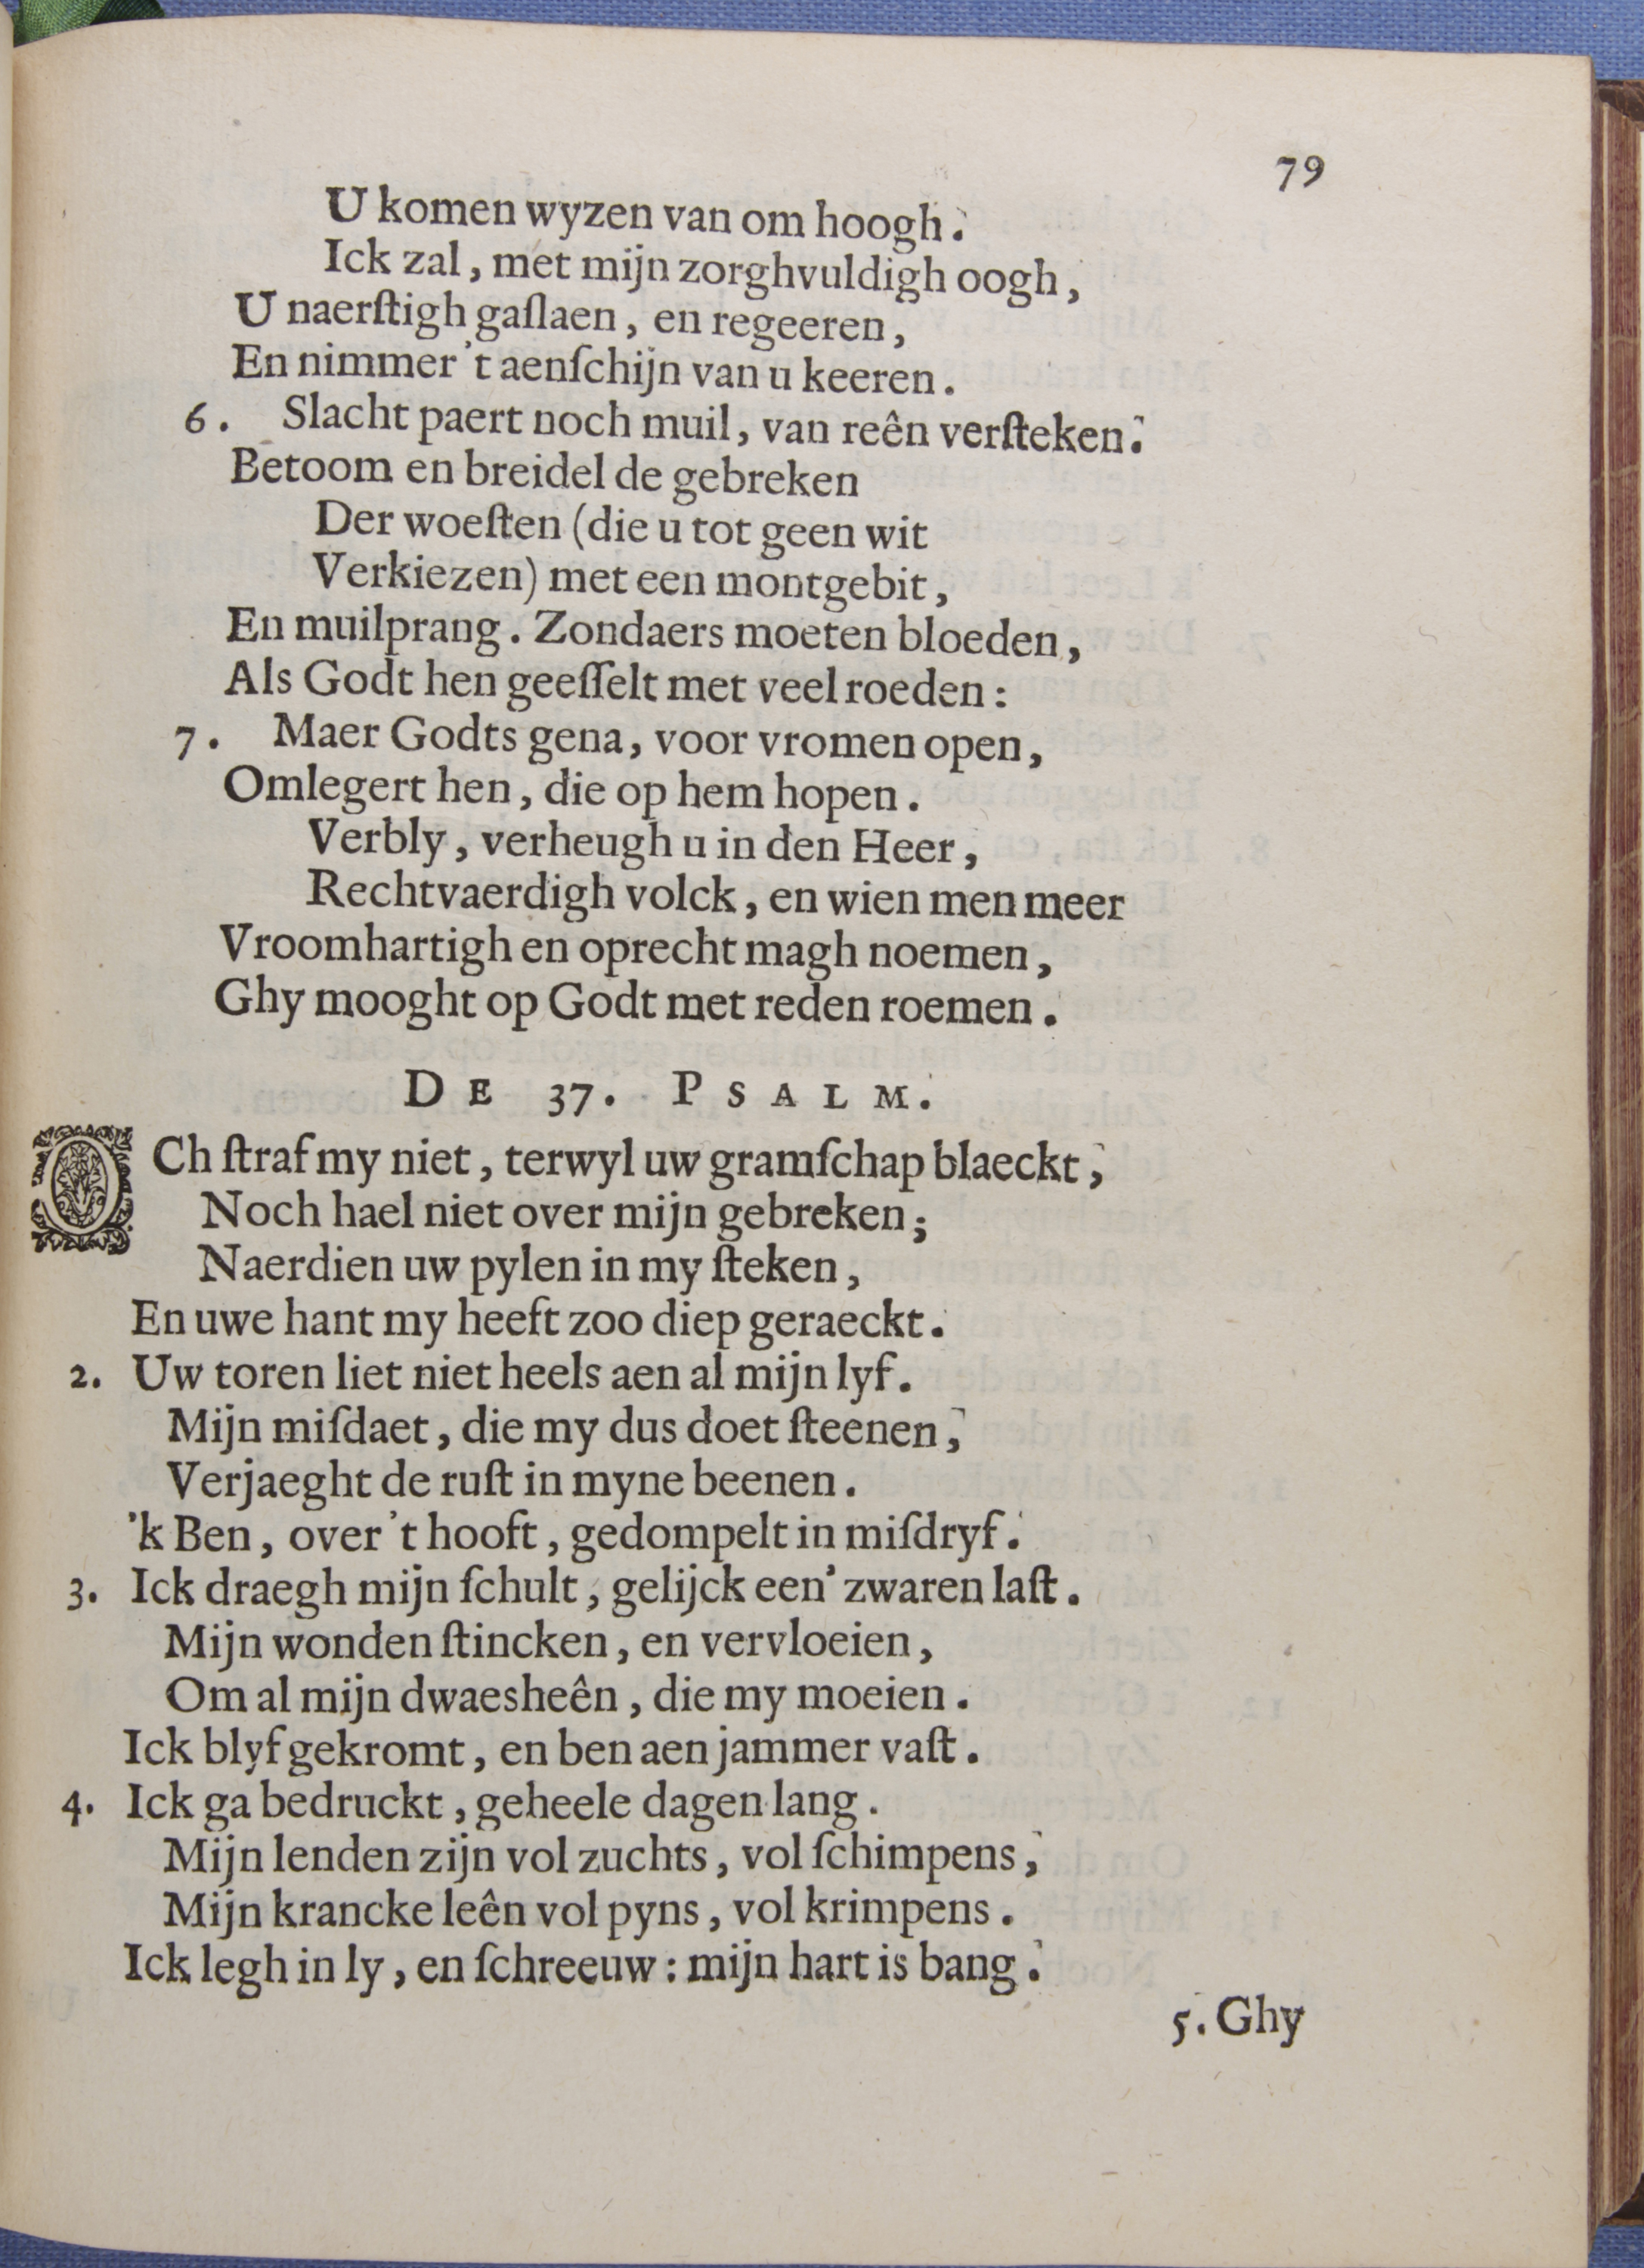 79
U komen wyzen van om hoogh.
Ick zal, met mijn zorghvuldigh oogh,
U naerſtigh gaſlaen, en regeeren,
En nimmer 't aenſchijn van u keeren.
6. Slacht paert noch muil, van reên verſteken.
Betoom en breidel de gebreken
Der woeſten (die u tot geen wit
Verkiezen) met een montgebit,
En muilprang. Zondaers moeten bloeden,
Als Godt hen geeſſelt met veel roeden:
7. Maer Godts gena, voor vromen open,
Omlegert hen, die op hem hopen.
Verbly, verheugh u in den Heer,
Rechtvaerdigh volck, en wien men meer
Vroomhartigh en oprecht magh noemen,
Ghy mooght op Godt met reden roemen.
DE 37. PSALM.
OCh ſtraf my niet, terwyl uw gramſchap blaeckt,
Noch hael niet over mijn gebreken;
Naerdien uw pylen in my ſteken,
En uwe hant my heeft zoo diep geraeckt.
2. Uw toren liet niet heels aen al mijn lyf.
Mijn miſdaet, die my dus doet ſteenen,
Verjaeght de ruſt in myne beenen.
'k Ben, over 't hooft, gedompelt in miſdryf.
3. Ick draegh mijn ſchult, gelijck een' zwaren laſt.
Mijn wonden ſtincken, en vervloeien,
Om al mijn dwaesheên, die my moeien.
Ick blyf gekromt, en ben aen jammer vaſt.
4. Ick ga bedruckt, geheele dagen lang.
Mijn lenden zijn vol zuchts, vol ſchimpens,
Mijn krancke leên vol pyns, vol krimpens.
Ick legh in ly, en ſchreeuw: mijn hart is bang.
5. Ghy